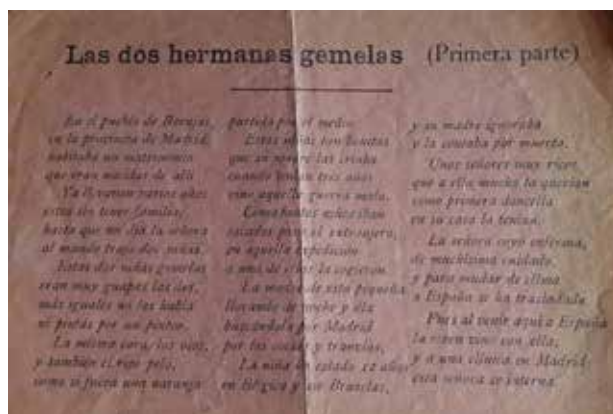 Las dos hermanas gemelas (Primera parte)
En el pueblo de Barajas,
en la provincia de Madrid,
habitaba un matrimonio
que eran nacidos de allí
Ya llevaron varios años
estos sin tener familia,
hasta que un día la señora
al mundo trajo dos niñas.
Estas dos niñas gemelas
eran muy guapas las dos,
más iguales no las había
ni pintás por un pintor.
La misma cara, los ojos,
y también el rojo pelo,
como si fuera una naranja
partida por el medio.
Estas niñas tan bonitas
que su madre las criaba
cuando tenían tres años
vino aquella guerra mala.
Como tantos niños iban
sacados para el extranjero,
en aquella expedición
a una de ellas la cogieron.
La madre de esta pequeña
llorando de noche y día
buscándola por Madrid
por las calles y tranvías,
La niña ha estado 12 años
en Bélgica y en Bruselas,
y su madre ignoraba
y la contaba por muerta.
Unos señores muy ricos
que a ella mucho la querían
como primera doncella
en su casa la tenían.
La señora cayó enferma,
de muchísimo cuidado,
y para mudar de clima
a España se ha trasladado
Pues al venir aquí a España
la joven vino con ella,
y a una clínica en Madrid
esta señora se interna.